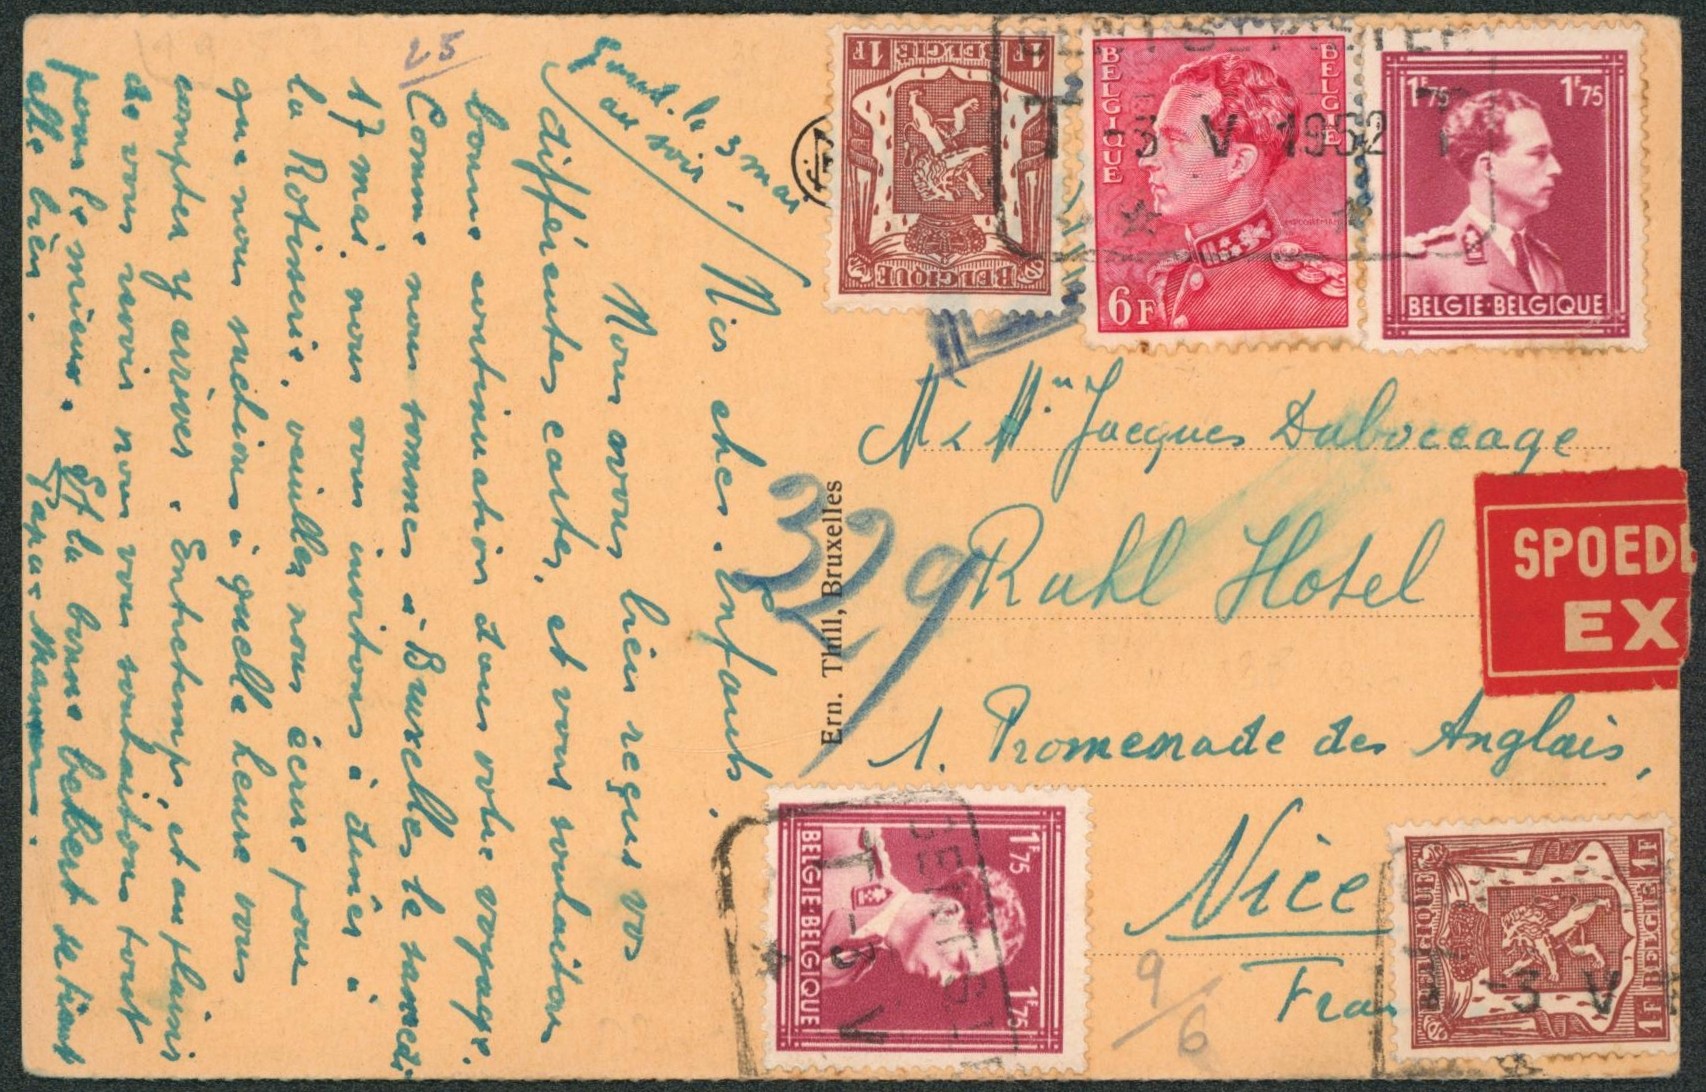 25
Gand. le 3 mai
au soir
Mes chers Enfants.
Nous avons bien reçus vos
différentes cartes, et vous souhaitons
bonne continuation dans votre voyage.
Comme nous sommes à Bruxelles le samedi
17 mai, nous vous invitons à dîner à
la Rotisserie, veuillez nous écrire pour
que nous sachions à quelle heure vous
comptez y arriver. Entretemps, et au plaisir
de vous revoir nous vous souhaitons tout
pour le mieux. Et la bonne se tient
elle bien.
Papa - Maman.
Ern. Thill, Bruxelles
329
1F BELGIË 1F
BELGIQUE
BELGIQUE
BELGIË
6F
1F75 1F75
BELGIE-BELGIQUE
-3 V 1952
Mr & Mme Jacques Duboccage
Ruhl Hotel
1. Promenade des Anglais,
Nice
Fran
SPOED
EX
1F75 1F75
BELGIE-BELGIQUE
T -3 V
9/6
BELGIQUE
1F BELGIË 1F
-3 V